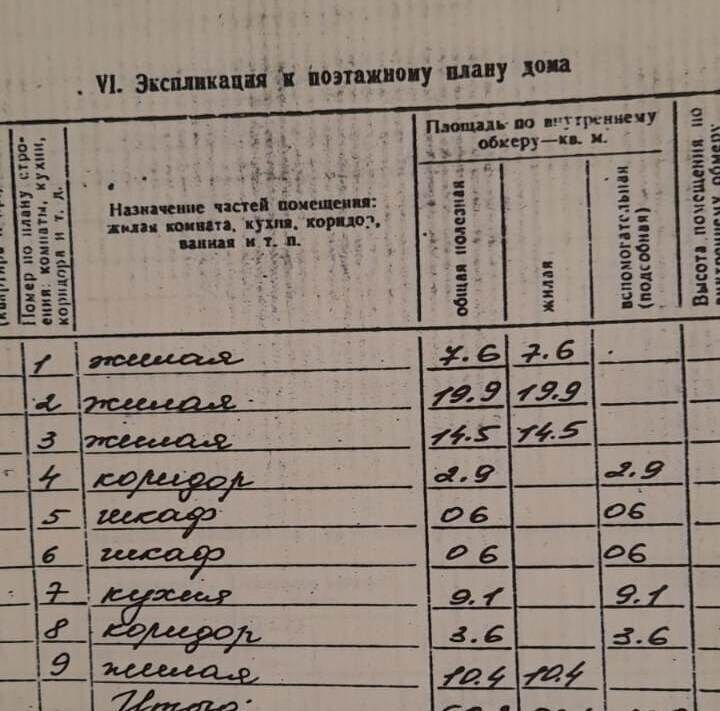 VI. Экспликация к поэтажному плану дома
Номер по плану стро-
ения: комнаты, кухни,
коридора и т. д.
Назначение частей помещения:
жилая комната, кухня, коридор,
ванная и т. п.
Площадь по внутреннему
обмеру—кв. м.
общая полезная
жилая
вспомогательная
(подсобная)
Высота помещения по
1 жилая 7.6 7.6
2 жилая 19.9 19.9
3 жилая 14.5 14.5
4 коридор 2.9 2.9
5 шкаф 06 06
6 шкаф 06 06
7 кухня 9.1 9.1
8 коридор 3.6 3.6
9 жилая 10.4 10.4
Итого: